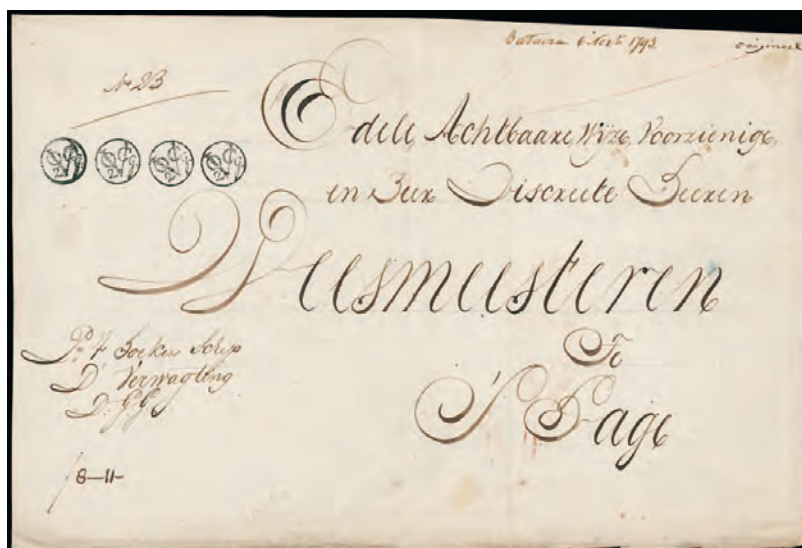 Batavia 6 Novb 1793.
origineel
No 23
Edele Achtbaare, Wijze, Voorzienige,
en Zeer Discreete Heeren
Weesmeesteren
Te
S'Hage
Pr 't Schip
D' Verwagting
D: G:G
8—11-